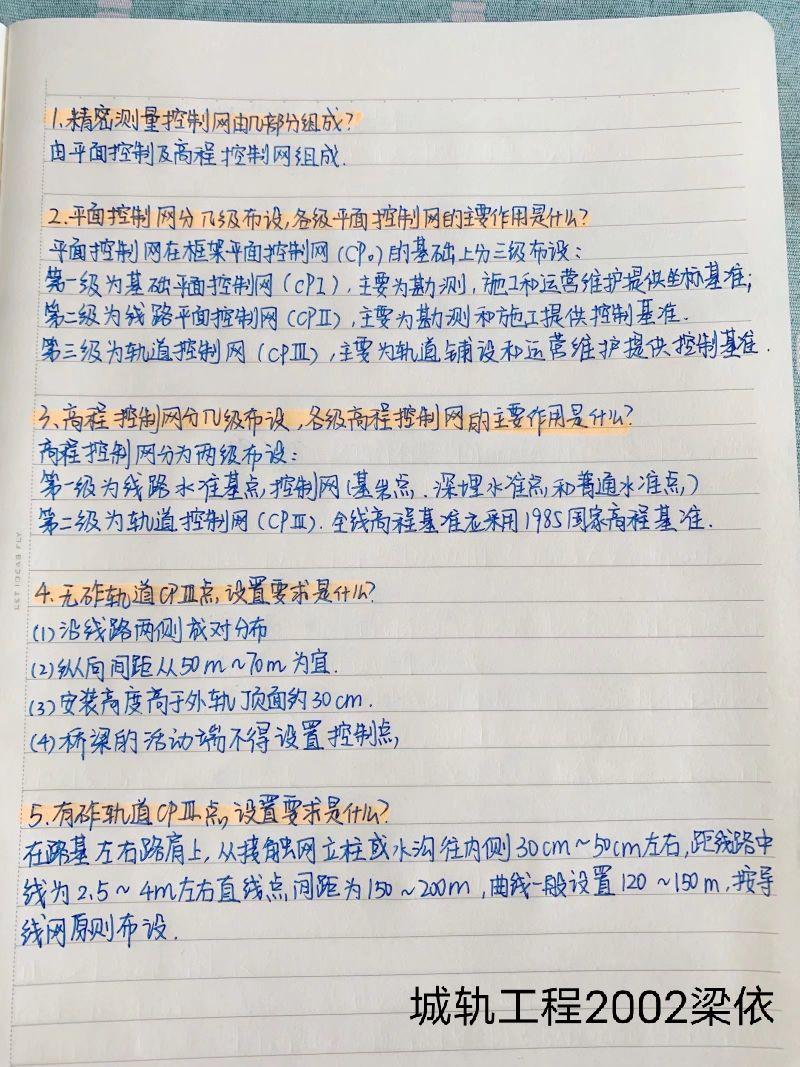 1.精密测量控制网由几部分组成?
由平面控制及高程控制网组成.
2.平面控制网分几级布设,各级平面控制网的主要作用是什么?
平面控制网在框架平面控制网(CP₀)的基础上分三级布设:
第一级为基础平面控制网(CPI),主要为勘测,施工和运营维护提供坐标基准;
第二级为线路平面控制网(CPII),主要为勘测和施工提供控制基准.
第三级为轨道控制网(CPIII),主要为轨道铺设和运营维护提供控制基准.
3.高程控制网分几级布设,各级高程控制网的主要作用是什么?
高程控制网分为两级布设:
第一级为线路水准基点控制网(基岩点.深埋水准点和普通水准点)
第二级为轨道控制网(CPIII).全线高程基准应采用1985国家高程基准.
LET IDEAS FLY
4.无砟轨道CPIII点设置要求是什么?
(1)沿线路两侧成对分布
(2)纵向间距从50m~70m为宜.
(3)安装高度高于外轨顶面约30cm.
(4)桥梁的活动端不得设置控制点,
5.有砟轨道CPIII点设置要求是什么?
在路基左右路肩上,从接触网立柱或水沟往内侧30cm~50cm左右,距线路中
线为2.5~4m左右直线点间距为150~200m,曲线一般设置120~150m,按导
线网原则布设.
城轨工程2002梁依